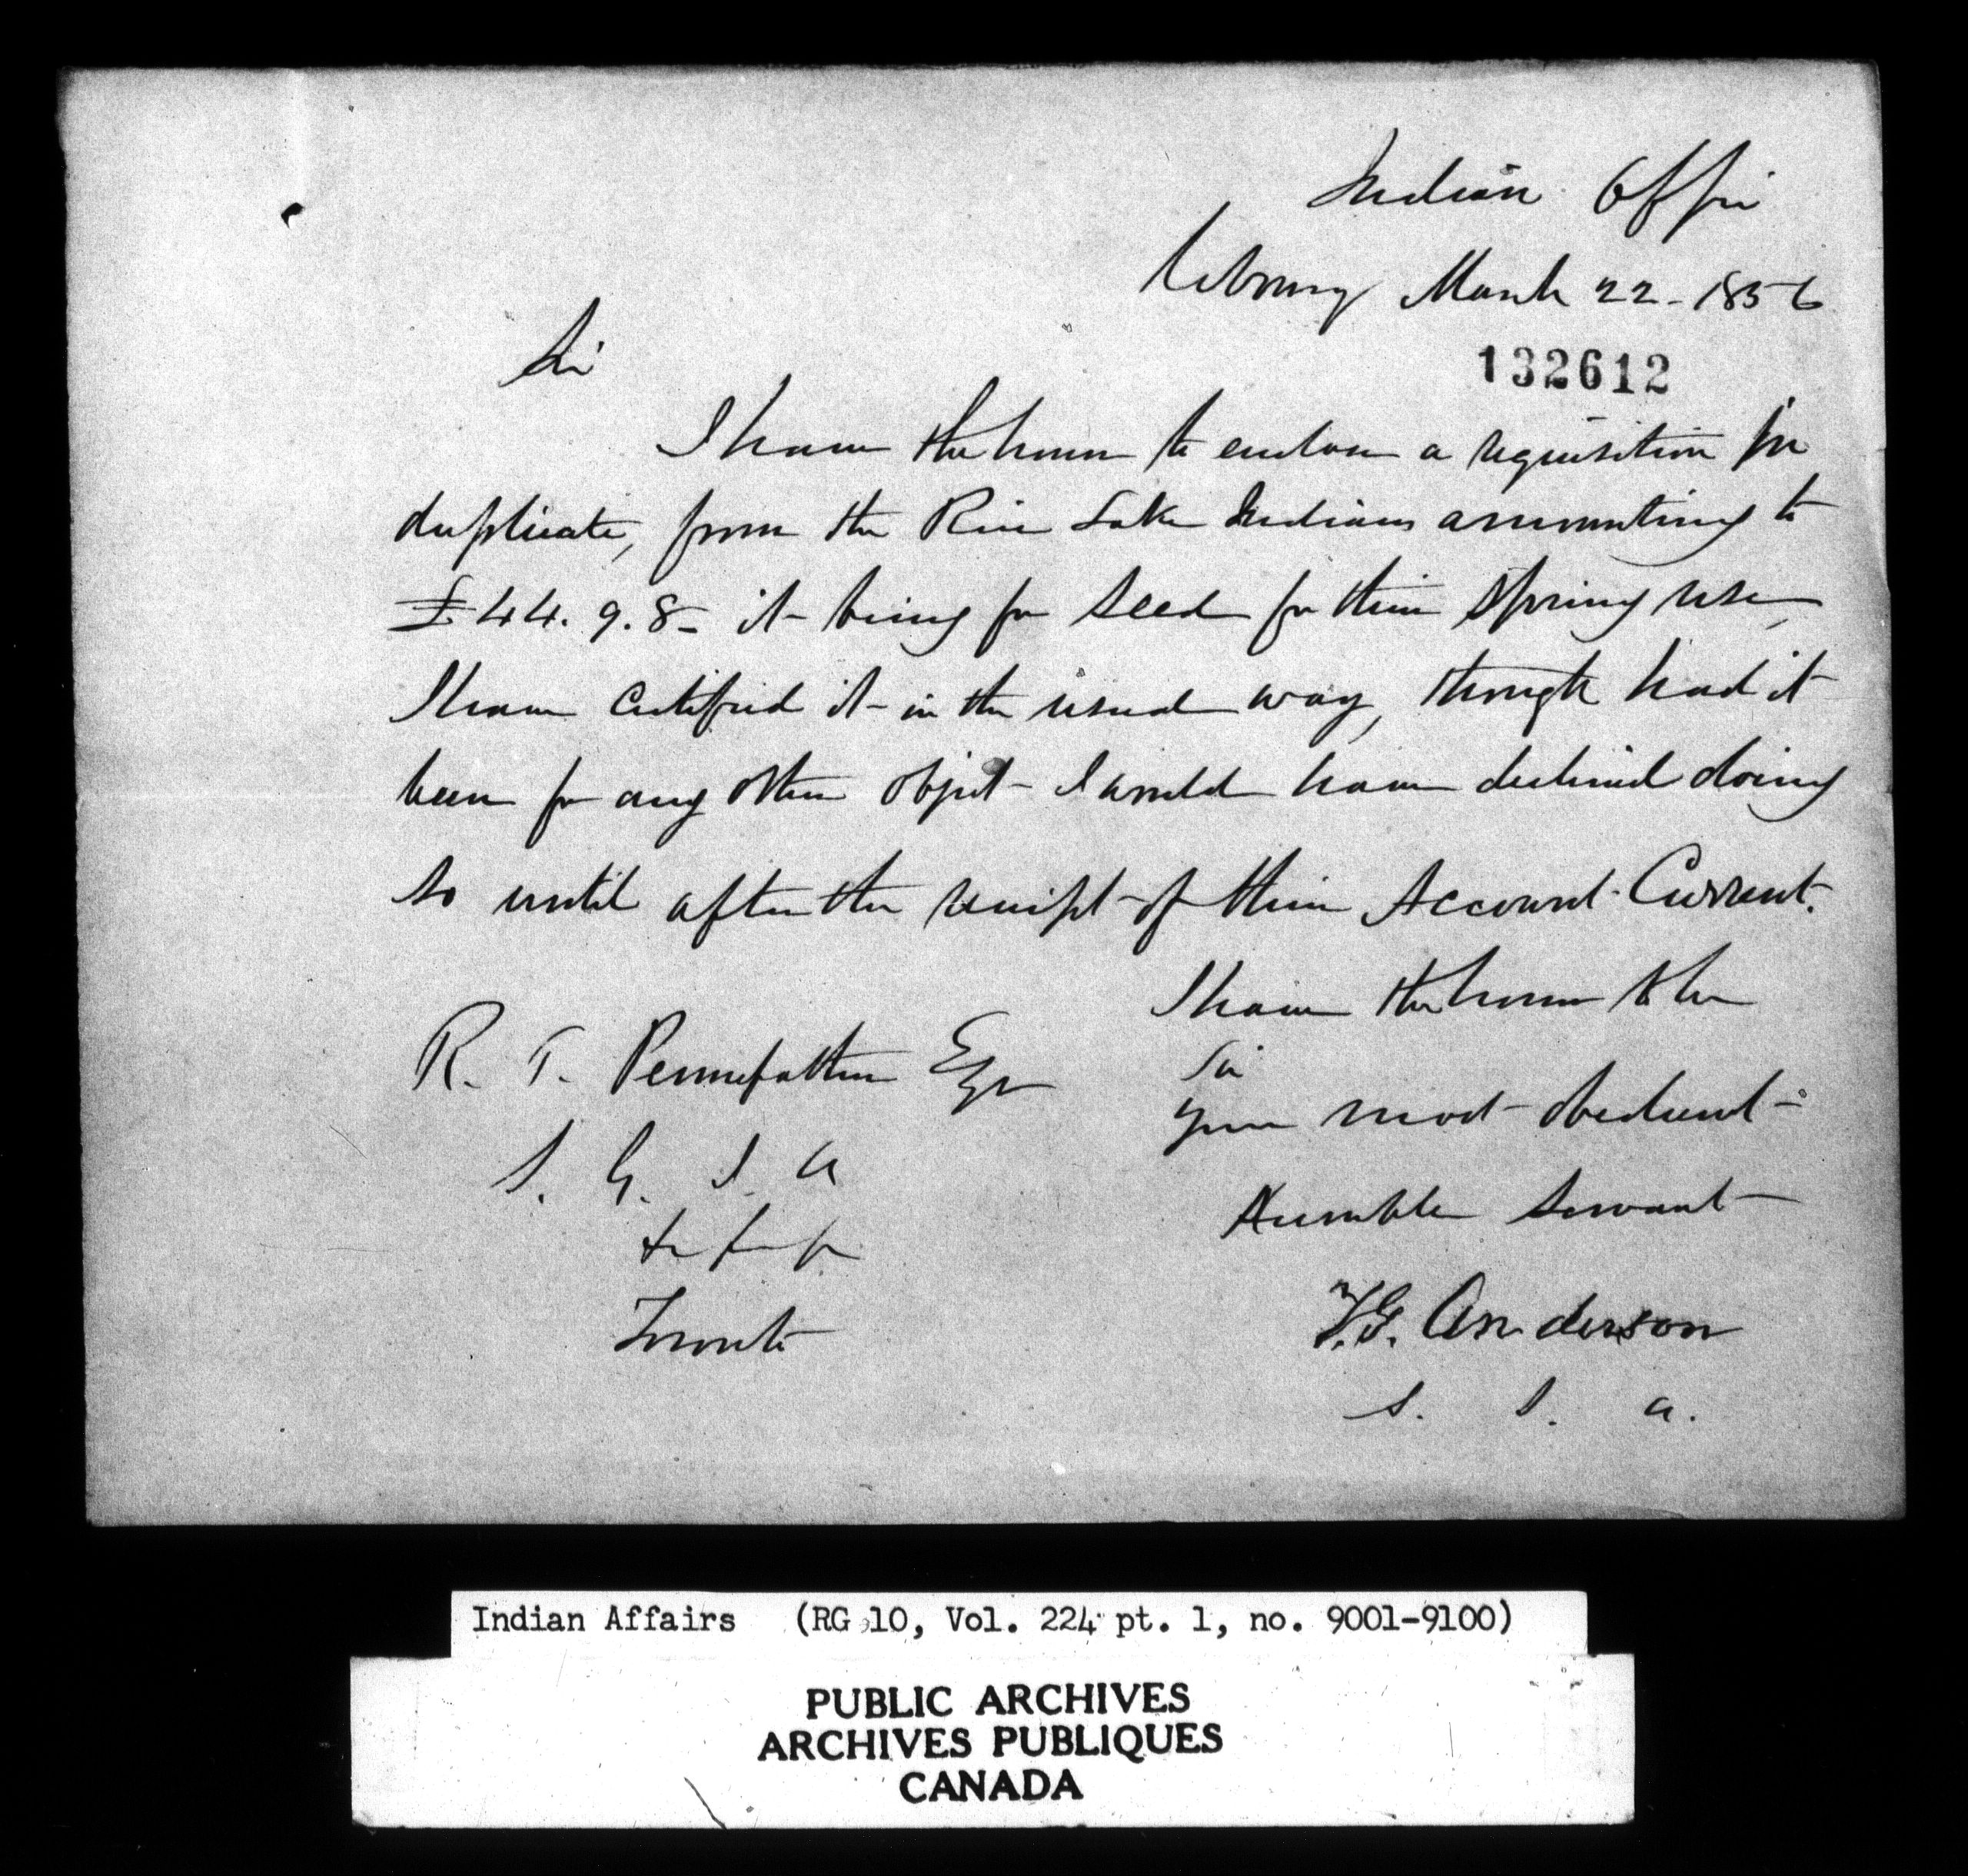 Indian Office
Cobourg March 22 - 1856
Sir
132612
I have the honor to enclose a requisition in
duplicate, from the Rice Lake Indians amounting to
£44. 9. 8 - it being for seed for their spring use,
I have certified it in the usual way, though had it
been for any other object I would have declined doing
so until after the receipt of their Account Current.
I have the honor to be
R. T. Pennefather Esqr
Sir
Your most obedient
S. G. I. A
Humble Servant
&c &c &c
Toronto
T.G. Anderson
S. I. A.
Indian Affairs (RG 10, Vol. 224 pt. 1, no. 9001-9100)
PUBLIC ARCHIVES
ARCHIVES PUBLIQUES
CANADA